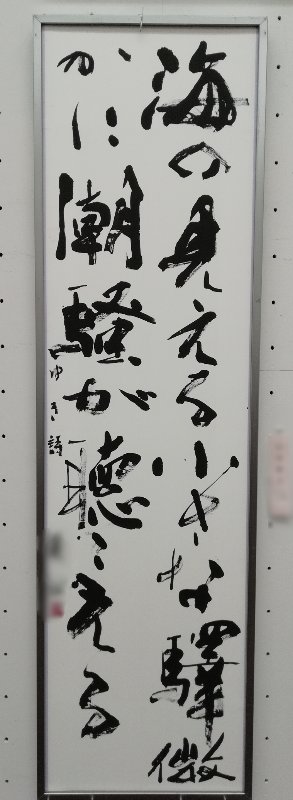 海の見える小さな驛微
かに潮騒が聴こえる
みゆき 詩